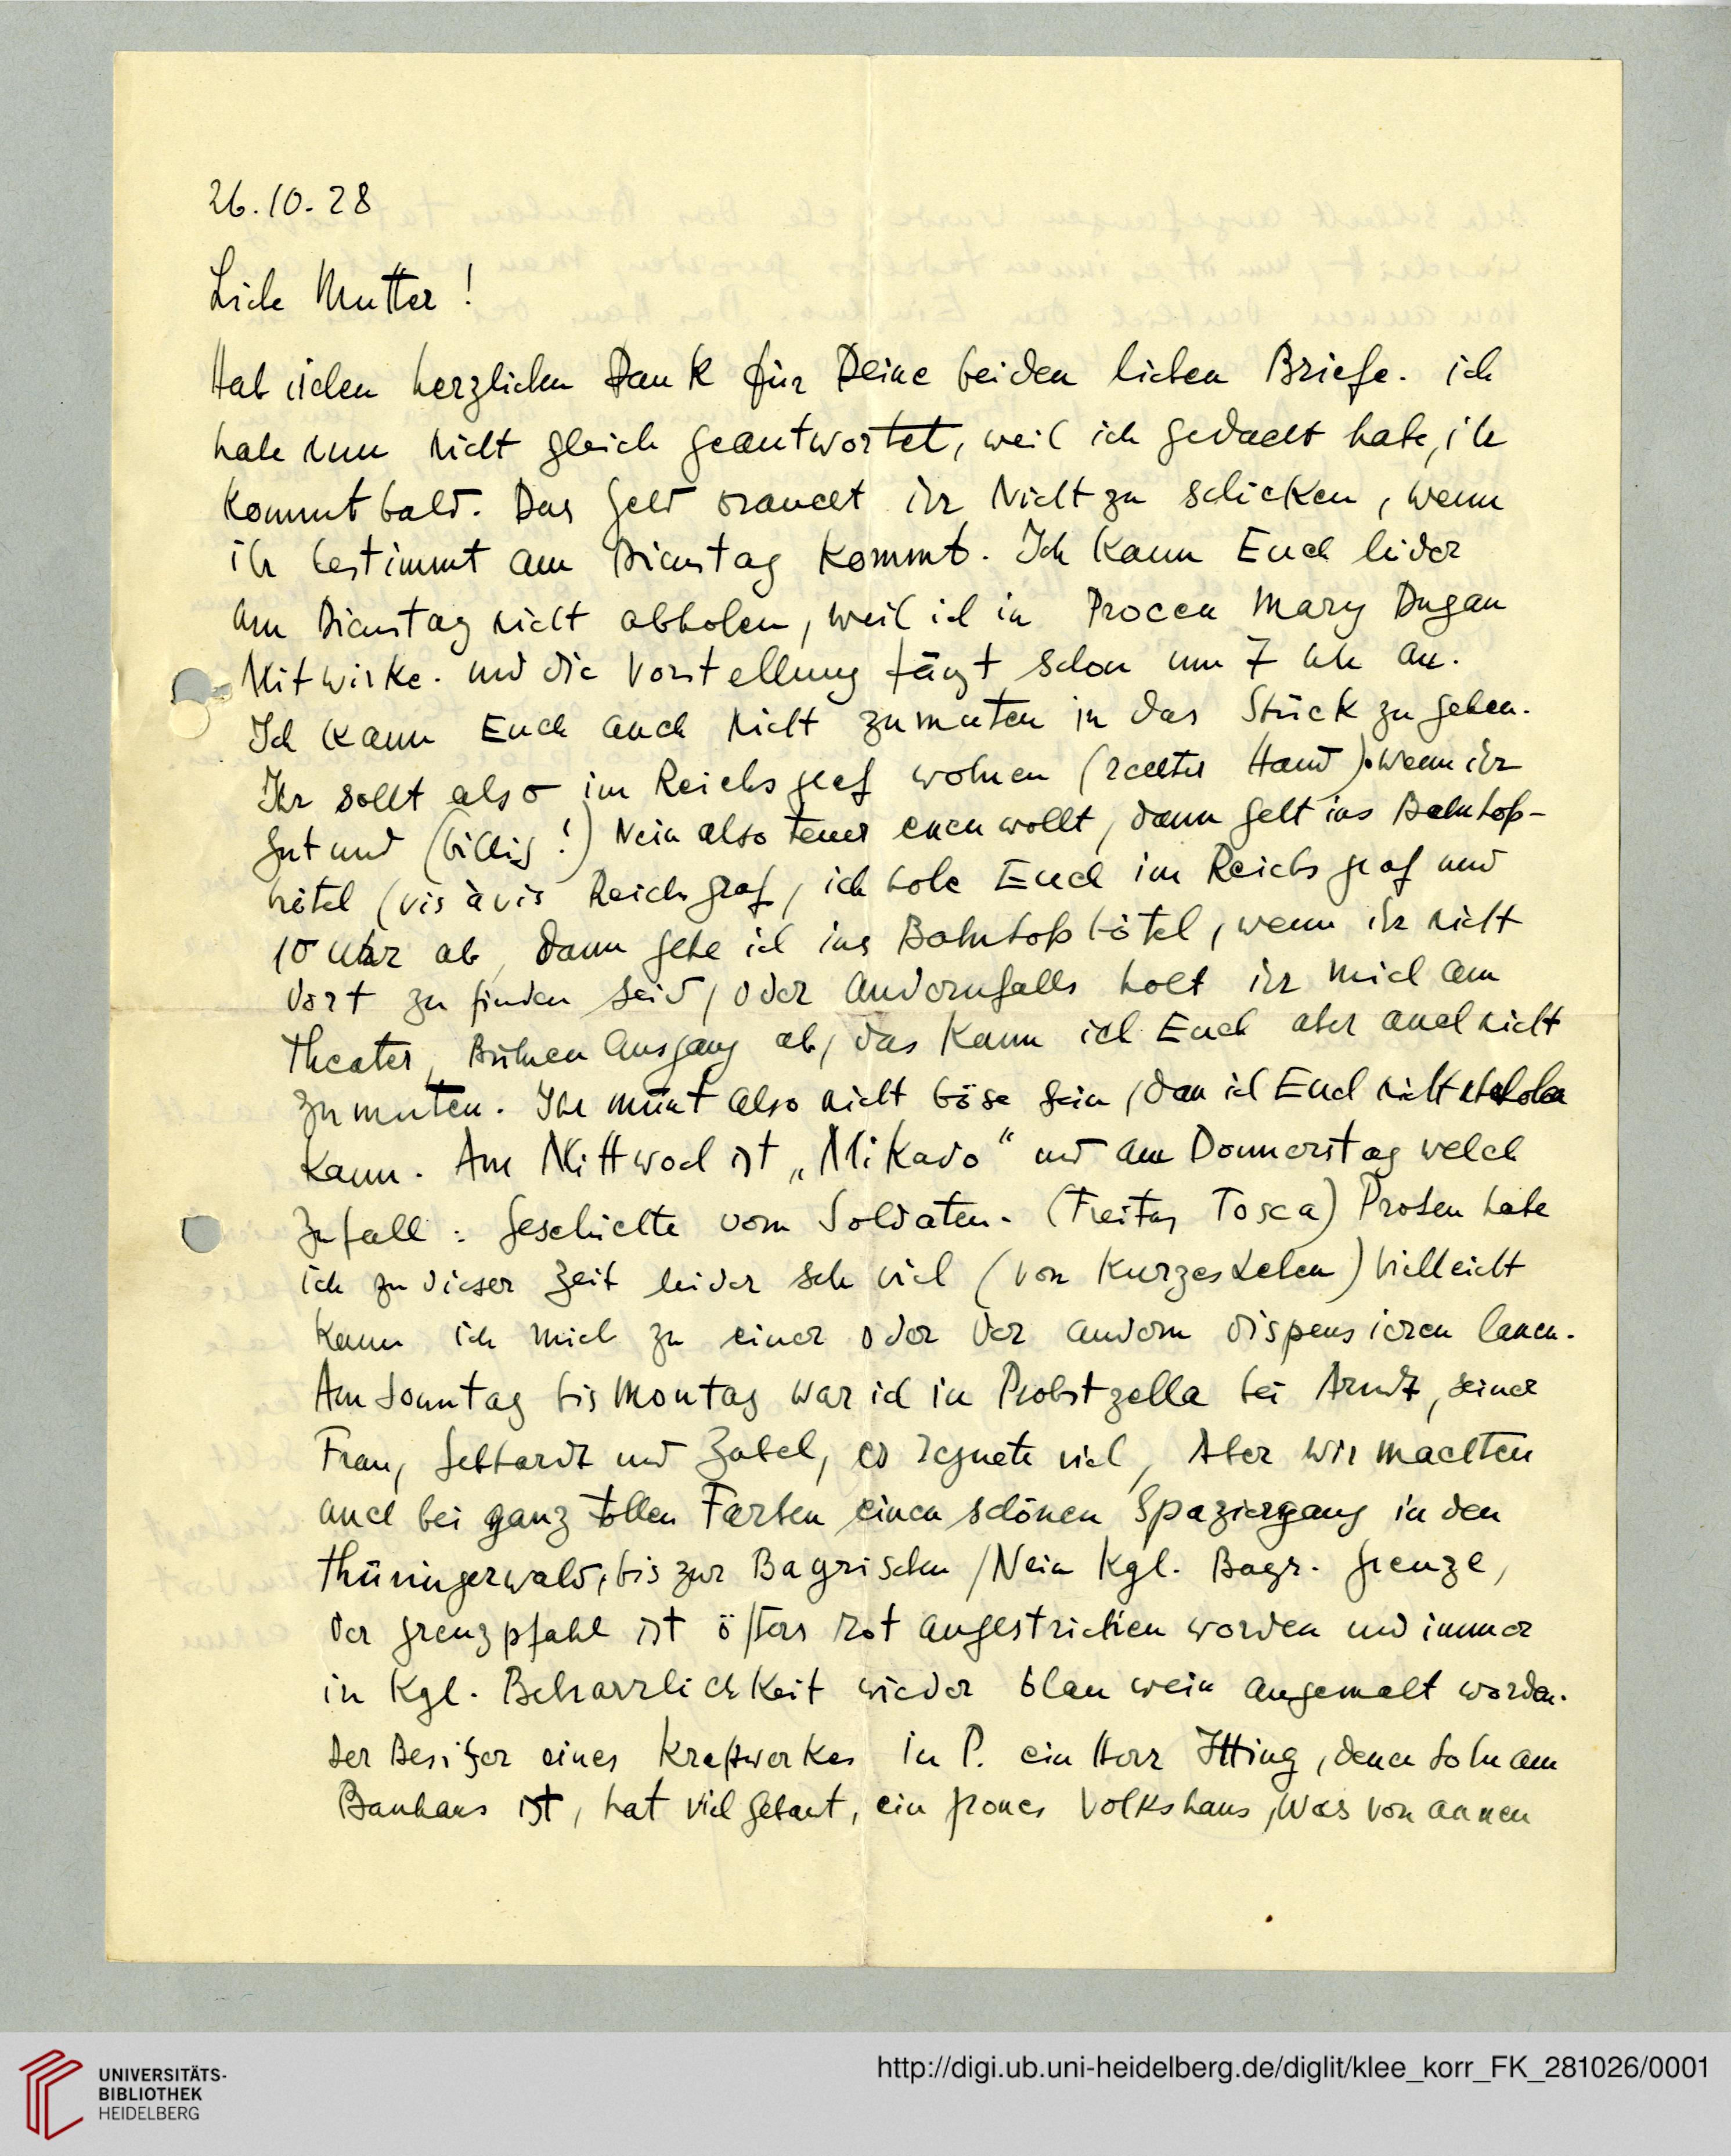 26.10.28
Liebe Mutter!
Hab vielen herzlichen Dank für Deine beiden lieben Briefe. ich
habe nun nicht gleich geantwortet, weil ich gedacht habe, ihr
kommt bald. Das Geld braucht ihr nicht zu schicken, wenn
ihr bestimmt am Dienstag kommt. Ich kann Euch leider
am Dienstag nicht abholen, weil ich in Procea Mary Dugan
mitwirke. und die Vorstellung fängt schon um 7 Uhr an.
Ich kann Euch auch nicht zumuten in das Stück zu gehen.
Ihr sollt also im Reichsgraf wohnen (rechter Hand). wenn ihr
gut und (billig!) Nein also teuer essen wollt, dann geht ins Bahnhofs-
hôtel (vis à vis Reichsgraf, ich hole Euch im Reichsgraf um
10 Uhr ab, dann gehe ich ins Bahnhofshôtel, wenn ihr nicht
dort zu finden seid, oder andernfalls holt ihr mich am
Theater, Bühnenausgang ab, das kann ich Euch aber auch nicht
zumuten. Ihr müsst also nicht böse sein, dass ich Euch nicht abholen
kann. Am Mittwoch ist „Mikado“ und am Donnerstag welch
Zufall: Geschichte vom Soldaten. (Freitag Tosca) Proben habe
ich zu dieser Zeit leider sehr viel (von Kurzes Leben) Vielleicht
kann ich mich zu einer oder der andern dispensieren lassen.
Am Sonntag bis Montag war ich in Probstzella bei Arndt, seiner
Frau, Gebhardt und Zabel, es regnete viel, Aber wir machten
auch bei ganz tollen Farben einen schönen Spaziergang in den
Thüringerwald, bis zur Bayrischen / Nein Kgl. Bayr. Grenze,
der Grenzpfahl ist öfters rot angestrichen worden und immer
in Kgl. Beharrlichkeit wieder blau weiss angemalt worden.
Der Besitzer eines Kraftwerkes in P. ein Herr Itting, dessen Sohn am
Bauhaus ist, hat viel gebaut, ein grosses Volkshaus, was von aussen
UNIVERSITÄTS-
BIBLIOTHEK
HEIDELBERG
http://digi.ub.uni-heidelberg.de/diglit/klee_korr_FK_281026/0001